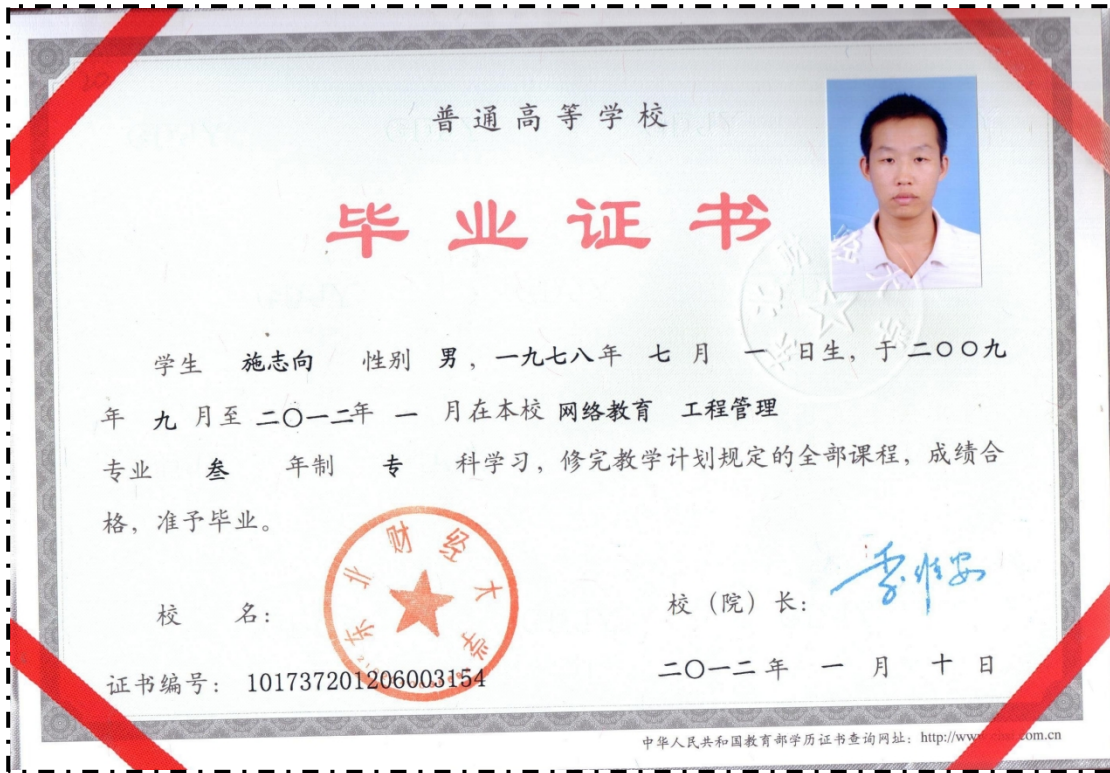 普通高等学校
毕业证书
学生 施志向 性别 男，一九七八年 七 月 一 日生，于 二〇〇九
年 九 月至 二〇一二年 一 月在本校 网络教育 工程管理
专业 叁 年制 专 科学习，修完教学计划规定的全部课程，成绩合
格，准予毕业。
东北财经大学
校 名：
校（院）长：
证书编号： 101737201206003154
二〇一二 年 一 月 十 日
中华人民共和国教育部学历证书查询网址：http://www.chsi.com.cn